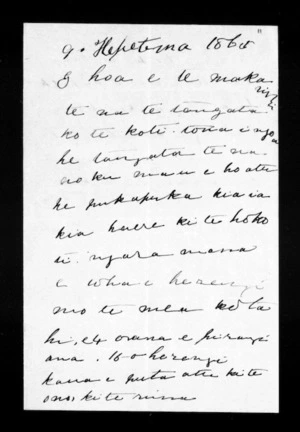 9. Hepetema 1865
E hoa e te maka
rini
te na te tangata
ko te koti. tona ingoa
he tangata te na
no ku mau e hoatu
he pukapuka kia ia
kia haere ki te hoko
ngara mana
e wha e herengi
mo te mea kotahi
hi, e4 orana e pirangi
ana. 16 o herengi
kaua e puta atu ki te
ono, ki te rima